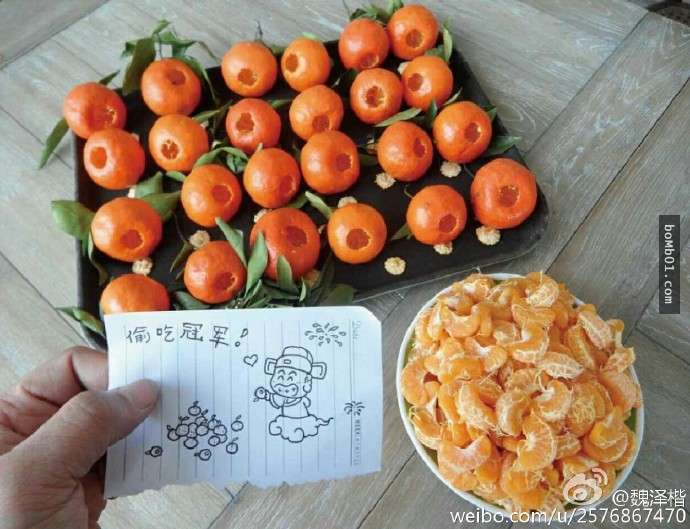 偷吃冠军!
Date
boMb01.com
@魏泽楷
weibo.com/u/2576867470